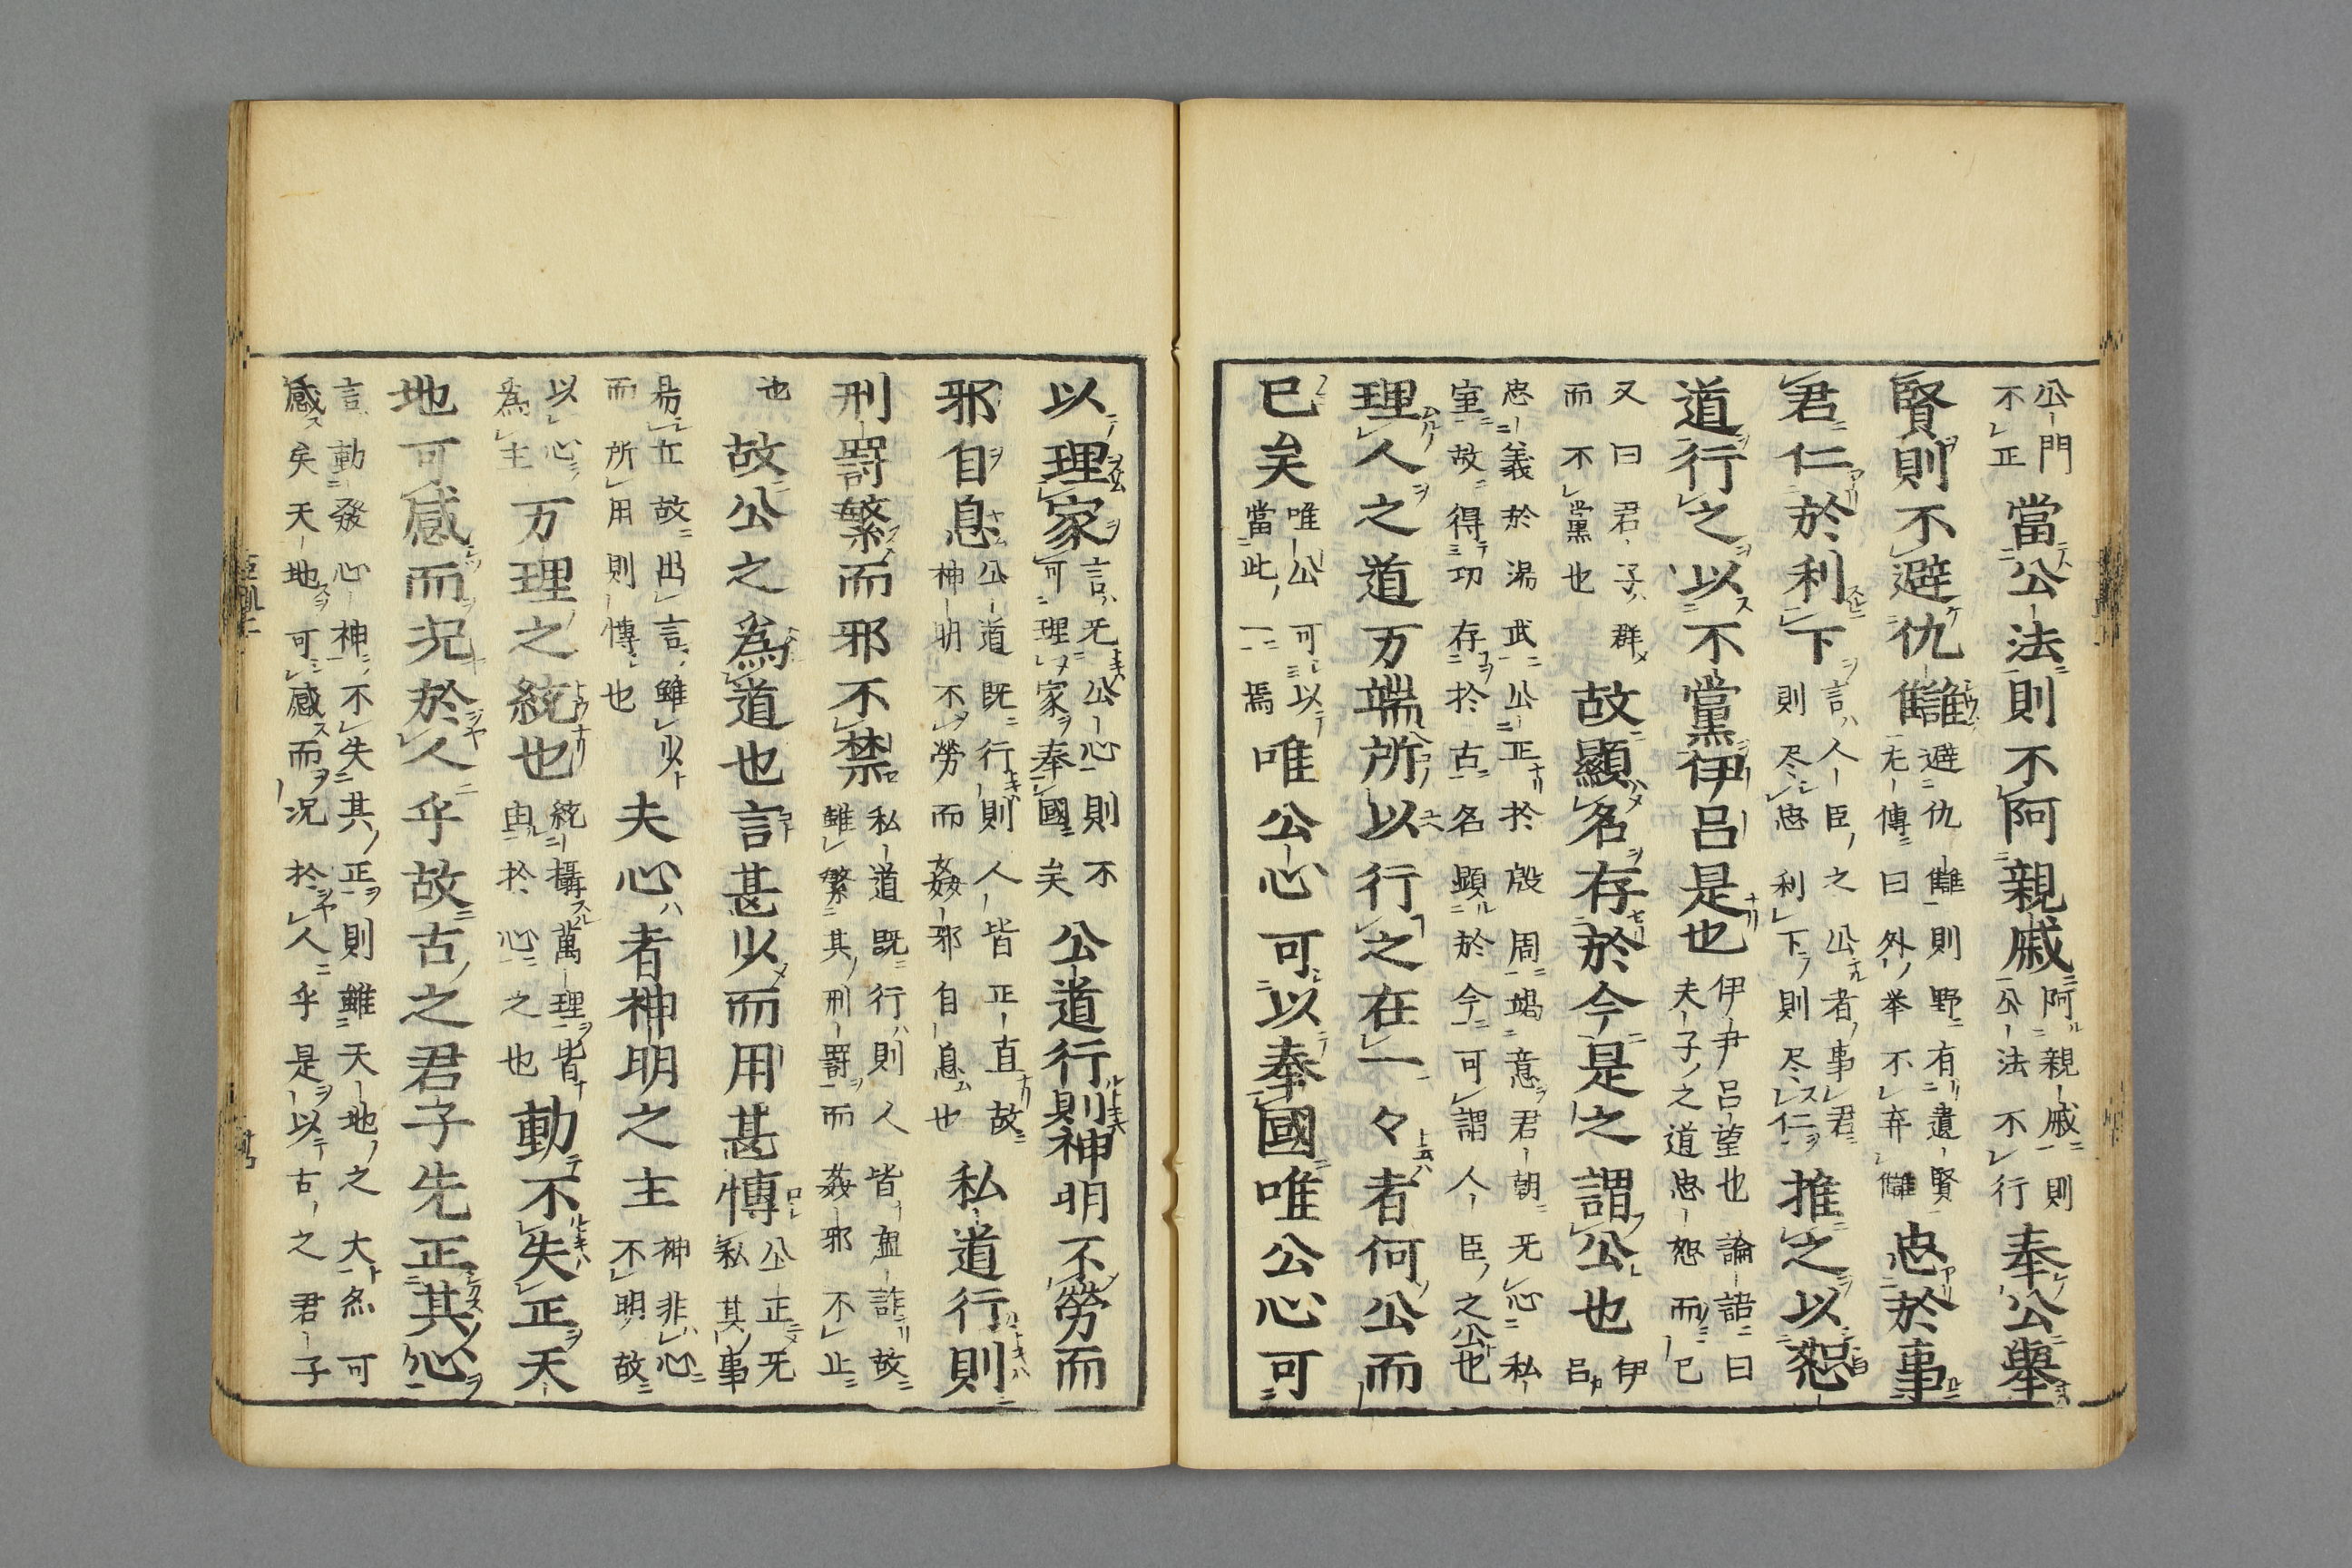 公門不正當公法則不阿親戚阿親戚則公法不行奉公舉
賢則不避仇讎避仇讎則野有遺賢左傳曰外举不弃讎忠於事
君仁於利下言人臣之公者事君則尽忠利下則尽仁推之以恕
道行之以不黨伊呂是也伊尹呂望也論語曰夫子之道忠恕而已
又曰君子群而不黨也故顯名存於今是之謂公也伊呂
忠義於湯武公正於殷周竭意君朝无心私室故得功存於古名顕於今可謂人臣之公也
理人之道万端所以行之在一々者何公而
已矣唯公可以當此一焉唯公心可以奉國唯公心可
以理家言无公心則不可理家奉國矣公道行則神明不勞而
邪自息公道既行則人皆正直故神明不勞而姦邪自息也私道行則
刑罸繁而邪不禁私道既行則人皆詐故雖繁其刑罸而姦邪不止
也故公之為道也言甚少而用甚博公正无私其事
易立故出言雖少而所用則博也夫心者神明之主神非心不明故
以心為主万理之統也統攝萬理皆由於心之也動不失正天
地可感而況於人乎故古之君子先正其心
言動發心神不失其正則雖天地之大然可感矣天地可感而况於人乎是以古之君子